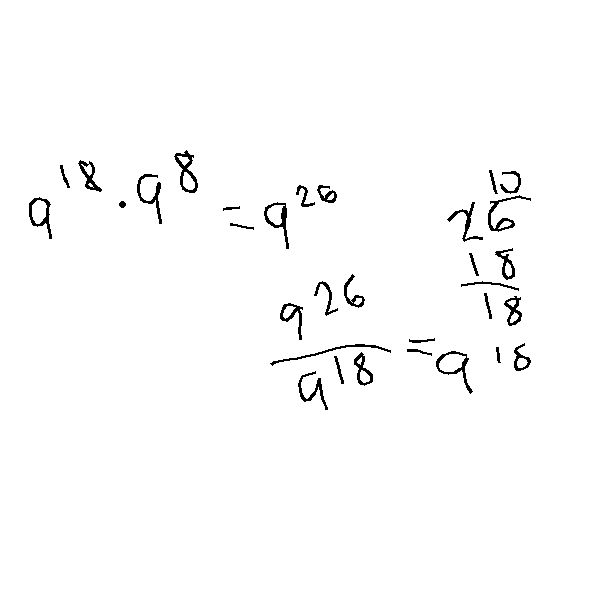 9^18 · 9^8 = 9^26
9^26 / 9^18 = 9^18
10
26
18
18